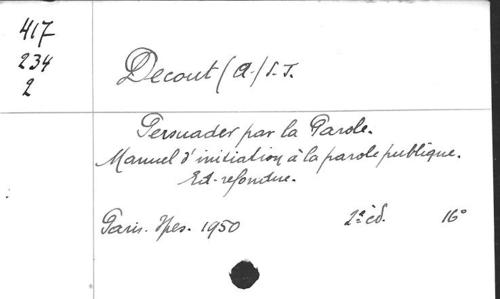 417
234
2
Decout (A.) S.J.
Persuader par la Parole.
Manuel d'initiation à la parole publique.
Ed. refondue.
Paris. Spes. 1950 2e éd. 16°